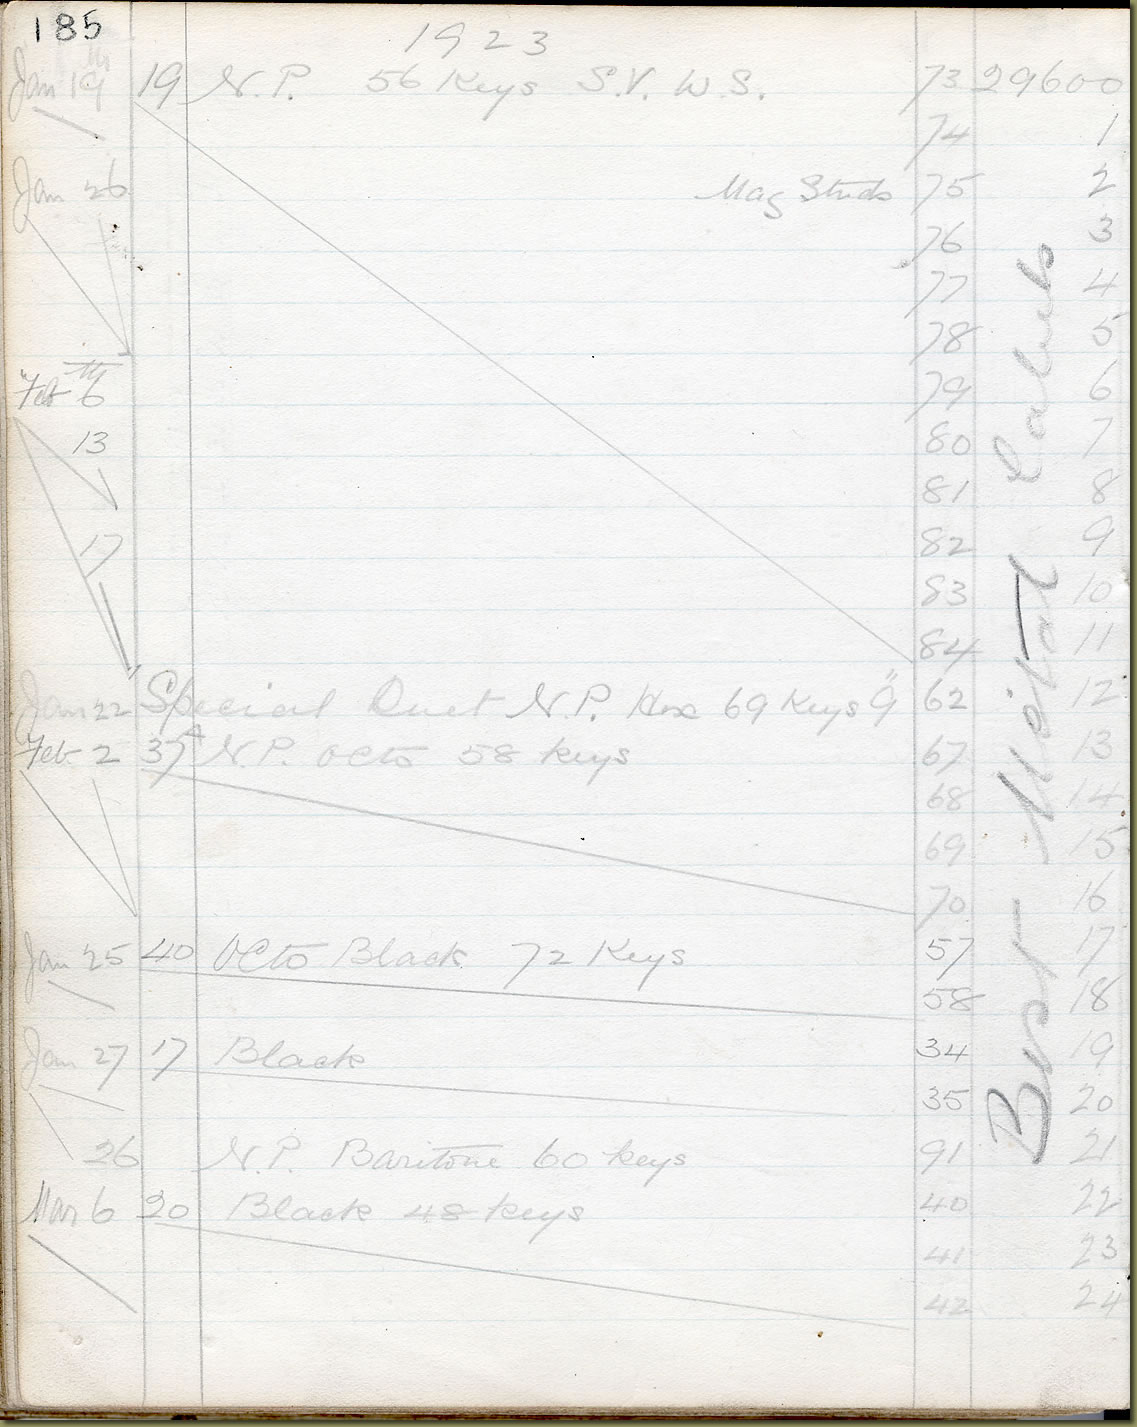 185
1923
Jan 19th 19 N.P. 56 Keys S.V. W.S. 73 29600
74 1
Jan 26 Mag Studs 75 2
76 3
77 4
78 5
Feb 6th 79 6
13 80 7
81 8
17 82 9
83 10
84 11
Jan 22 Special Duet N.P. Hex 69 Keys 9" 62 12
Feb 2 37A N.P. Octo 58 Keys 67 13
68 14
69 15
70 16
Jan 25 40 Octo Black 72 Keys 57 17
58 18
Jan 27 17 Black 34 19
35 20
26 N.P. Baritone 60 Keys 91 21
Mar 6 20 Black 48 Keys 40 22
41 23
42 24
Best